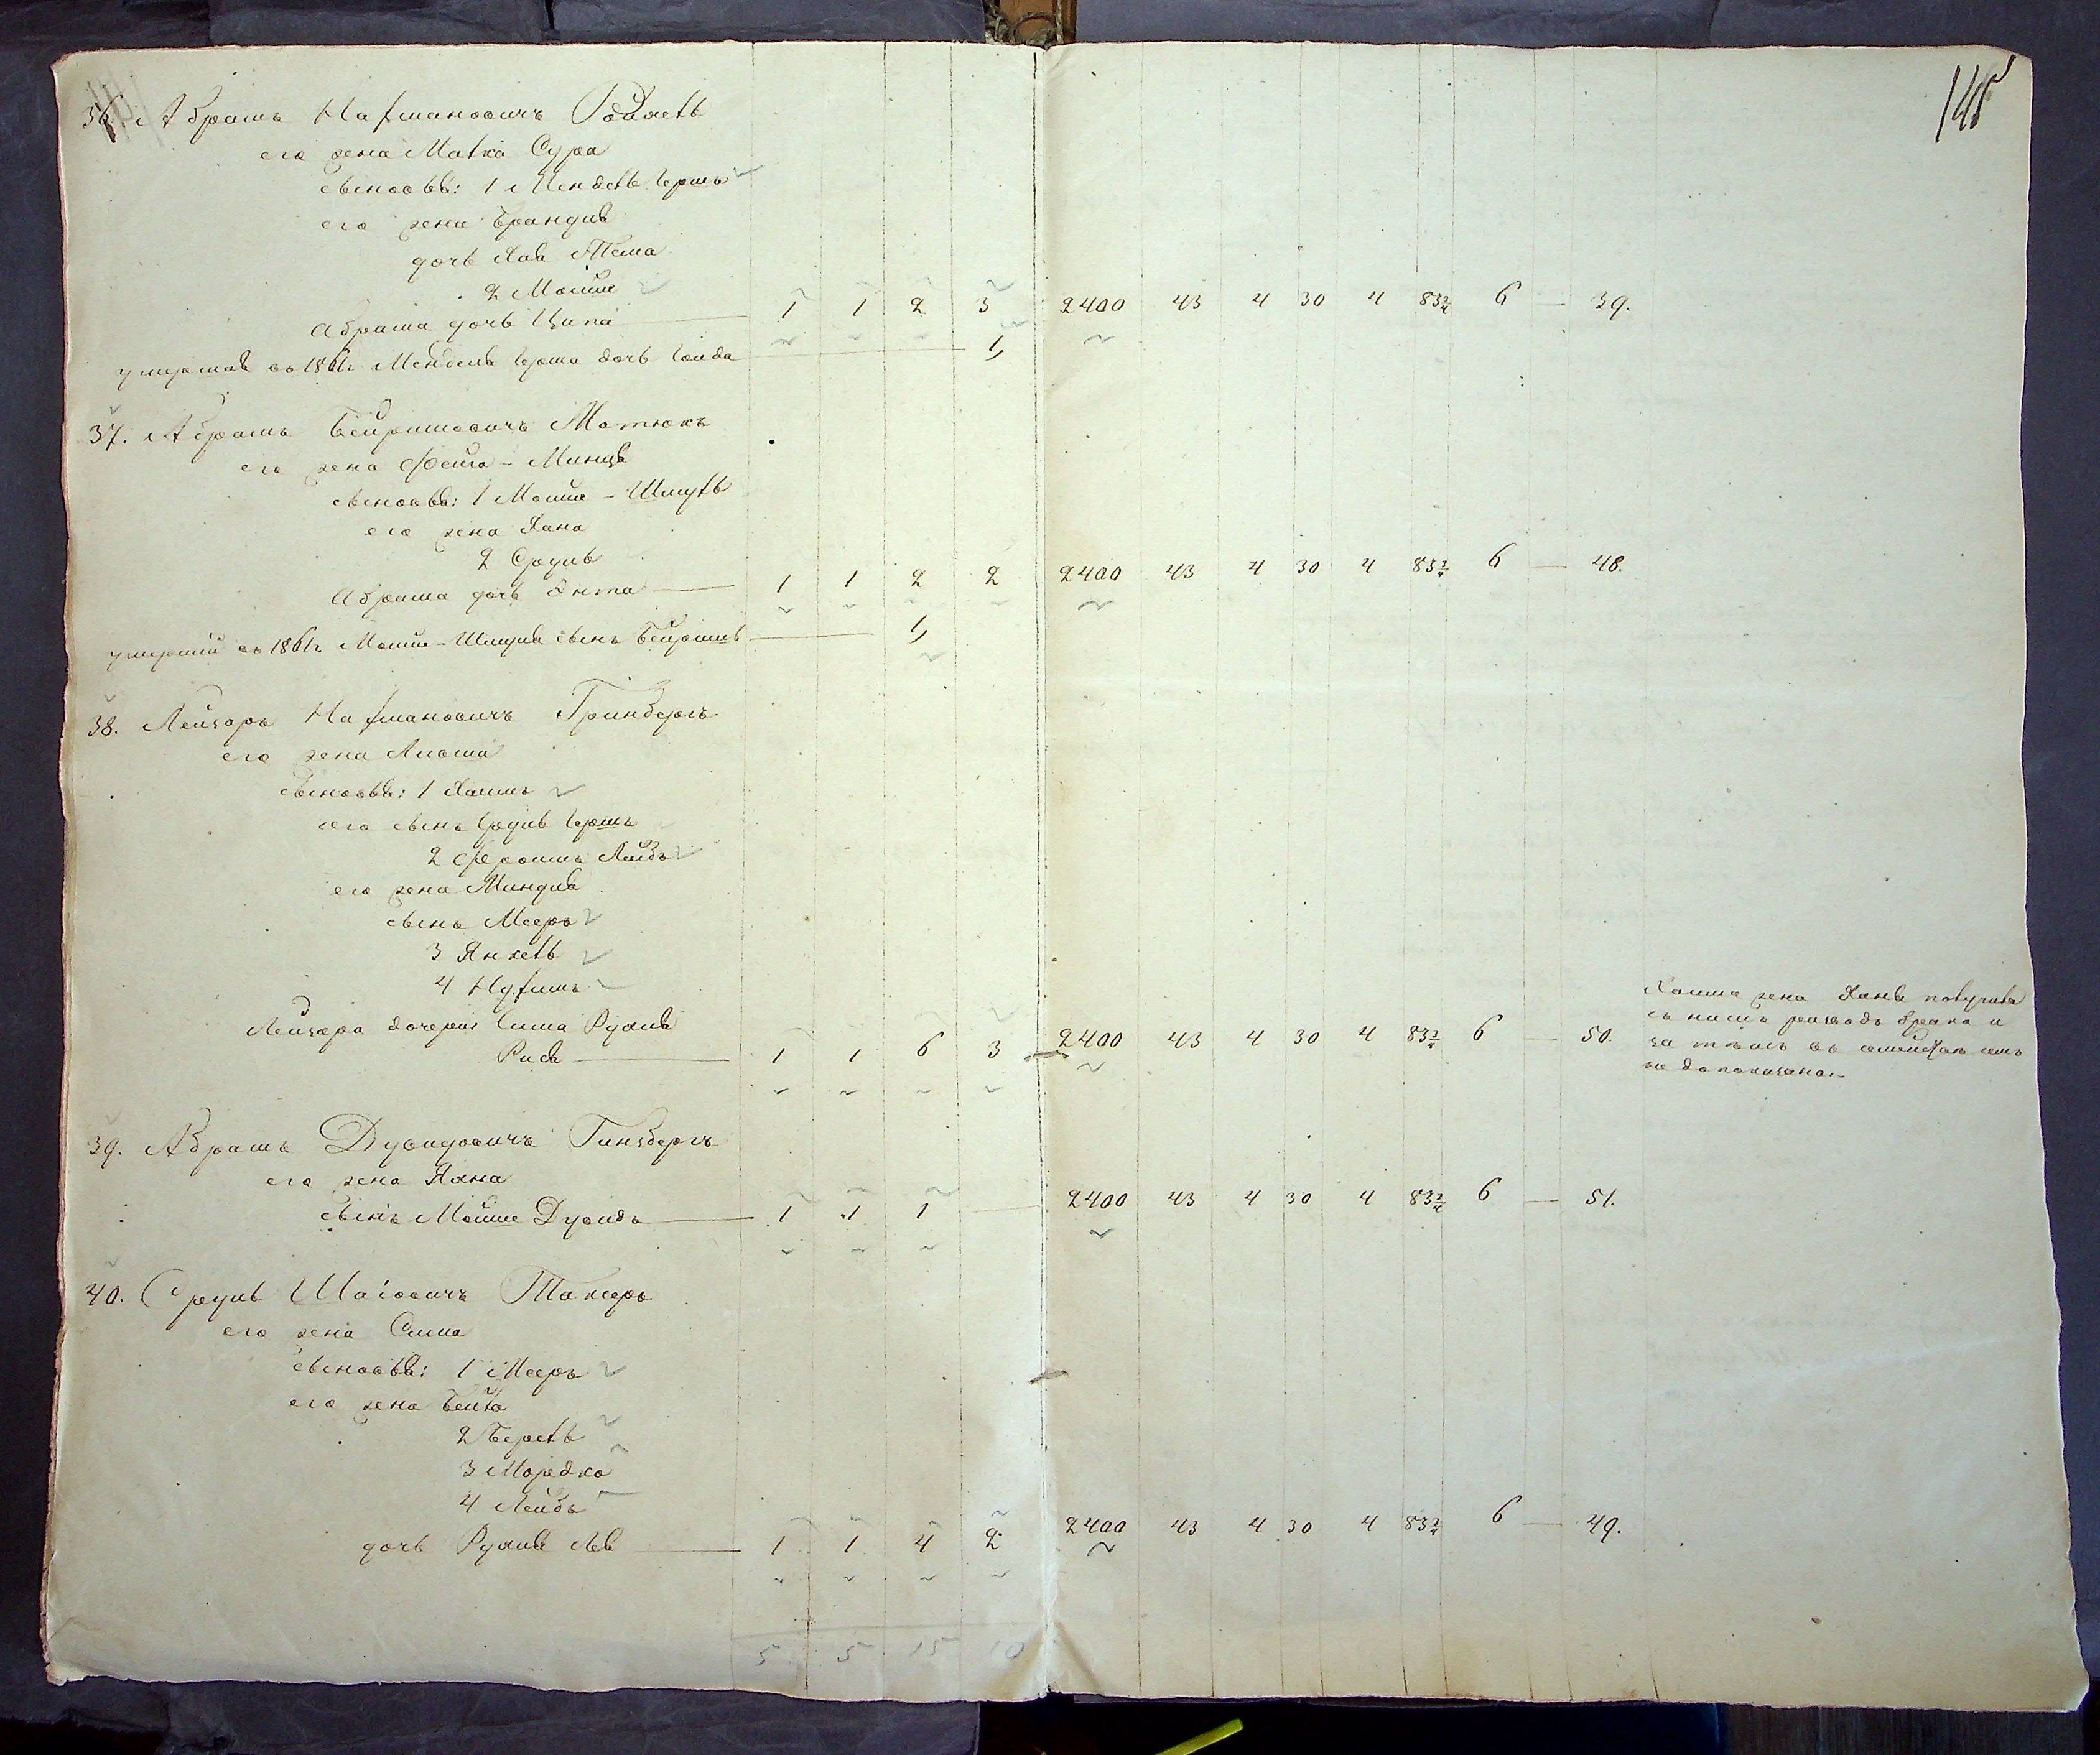 145
36. Абрамъ Нахмановичъ
его жена Матка Сура
сыновья: 1 Мендель Гершъ
его жена Брандля
дочь Хая Тема
2 Мошше
Абрама дочь Ципа 1 1 2 3 2400 43 4 30 4 83 3/4 6 — 39.
умершая въ 1861г Менделя Герша дочь Гольда 1,
37. Абрамъ Бейришовичъ Матюкъ
его жена Фейга - Минця
сыновья: 1 Мошше - Шмуль
его жена Хана
2 Сруль
Абрама дочь Энта 1 1 2 2 2400 43 4 30 4 83 3/4 6 — 48.
умерший въ 1861г Мошше - Шмуля сынъ Бейришъ 1,
38. Лейзоръ Нахмановичъ Гринбергъ
его жена
сыновья: 1 Хаимъ
его сынъ Сруль Гершъ
2 Фроимъ Лейбъ
его жена Миндля
сынъ Мееръ
3 Янкель
4 Нухимъ
Лейзора дочери: Сима Рухля
Рися 1 1 6 3 2400 43 4 30 4 83 3/4 6 — 50.
Хаима жена Ханя получила
съ нимъ разводъ брака и
за тѣмъ въ
не допоказана.
39. Абрамъ Дувидовичъ Гинзбергъ
его жена Хана
сынъ Мошше Дувидъ 1 1 1 — 2400 43 4 30 4 83 3/4 6 — 51.
40. Сруль Шаіовичъ Токеръ
его жена Сима
сыновья: 1 Мееръ
его жена Бейла
2 Берель
3 Мордко
4 Лейбъ
дочь Рухля Лея 1 1 4 2 2400 43 4 30 4 83 3/4 6 — 49.
5 5 15 10